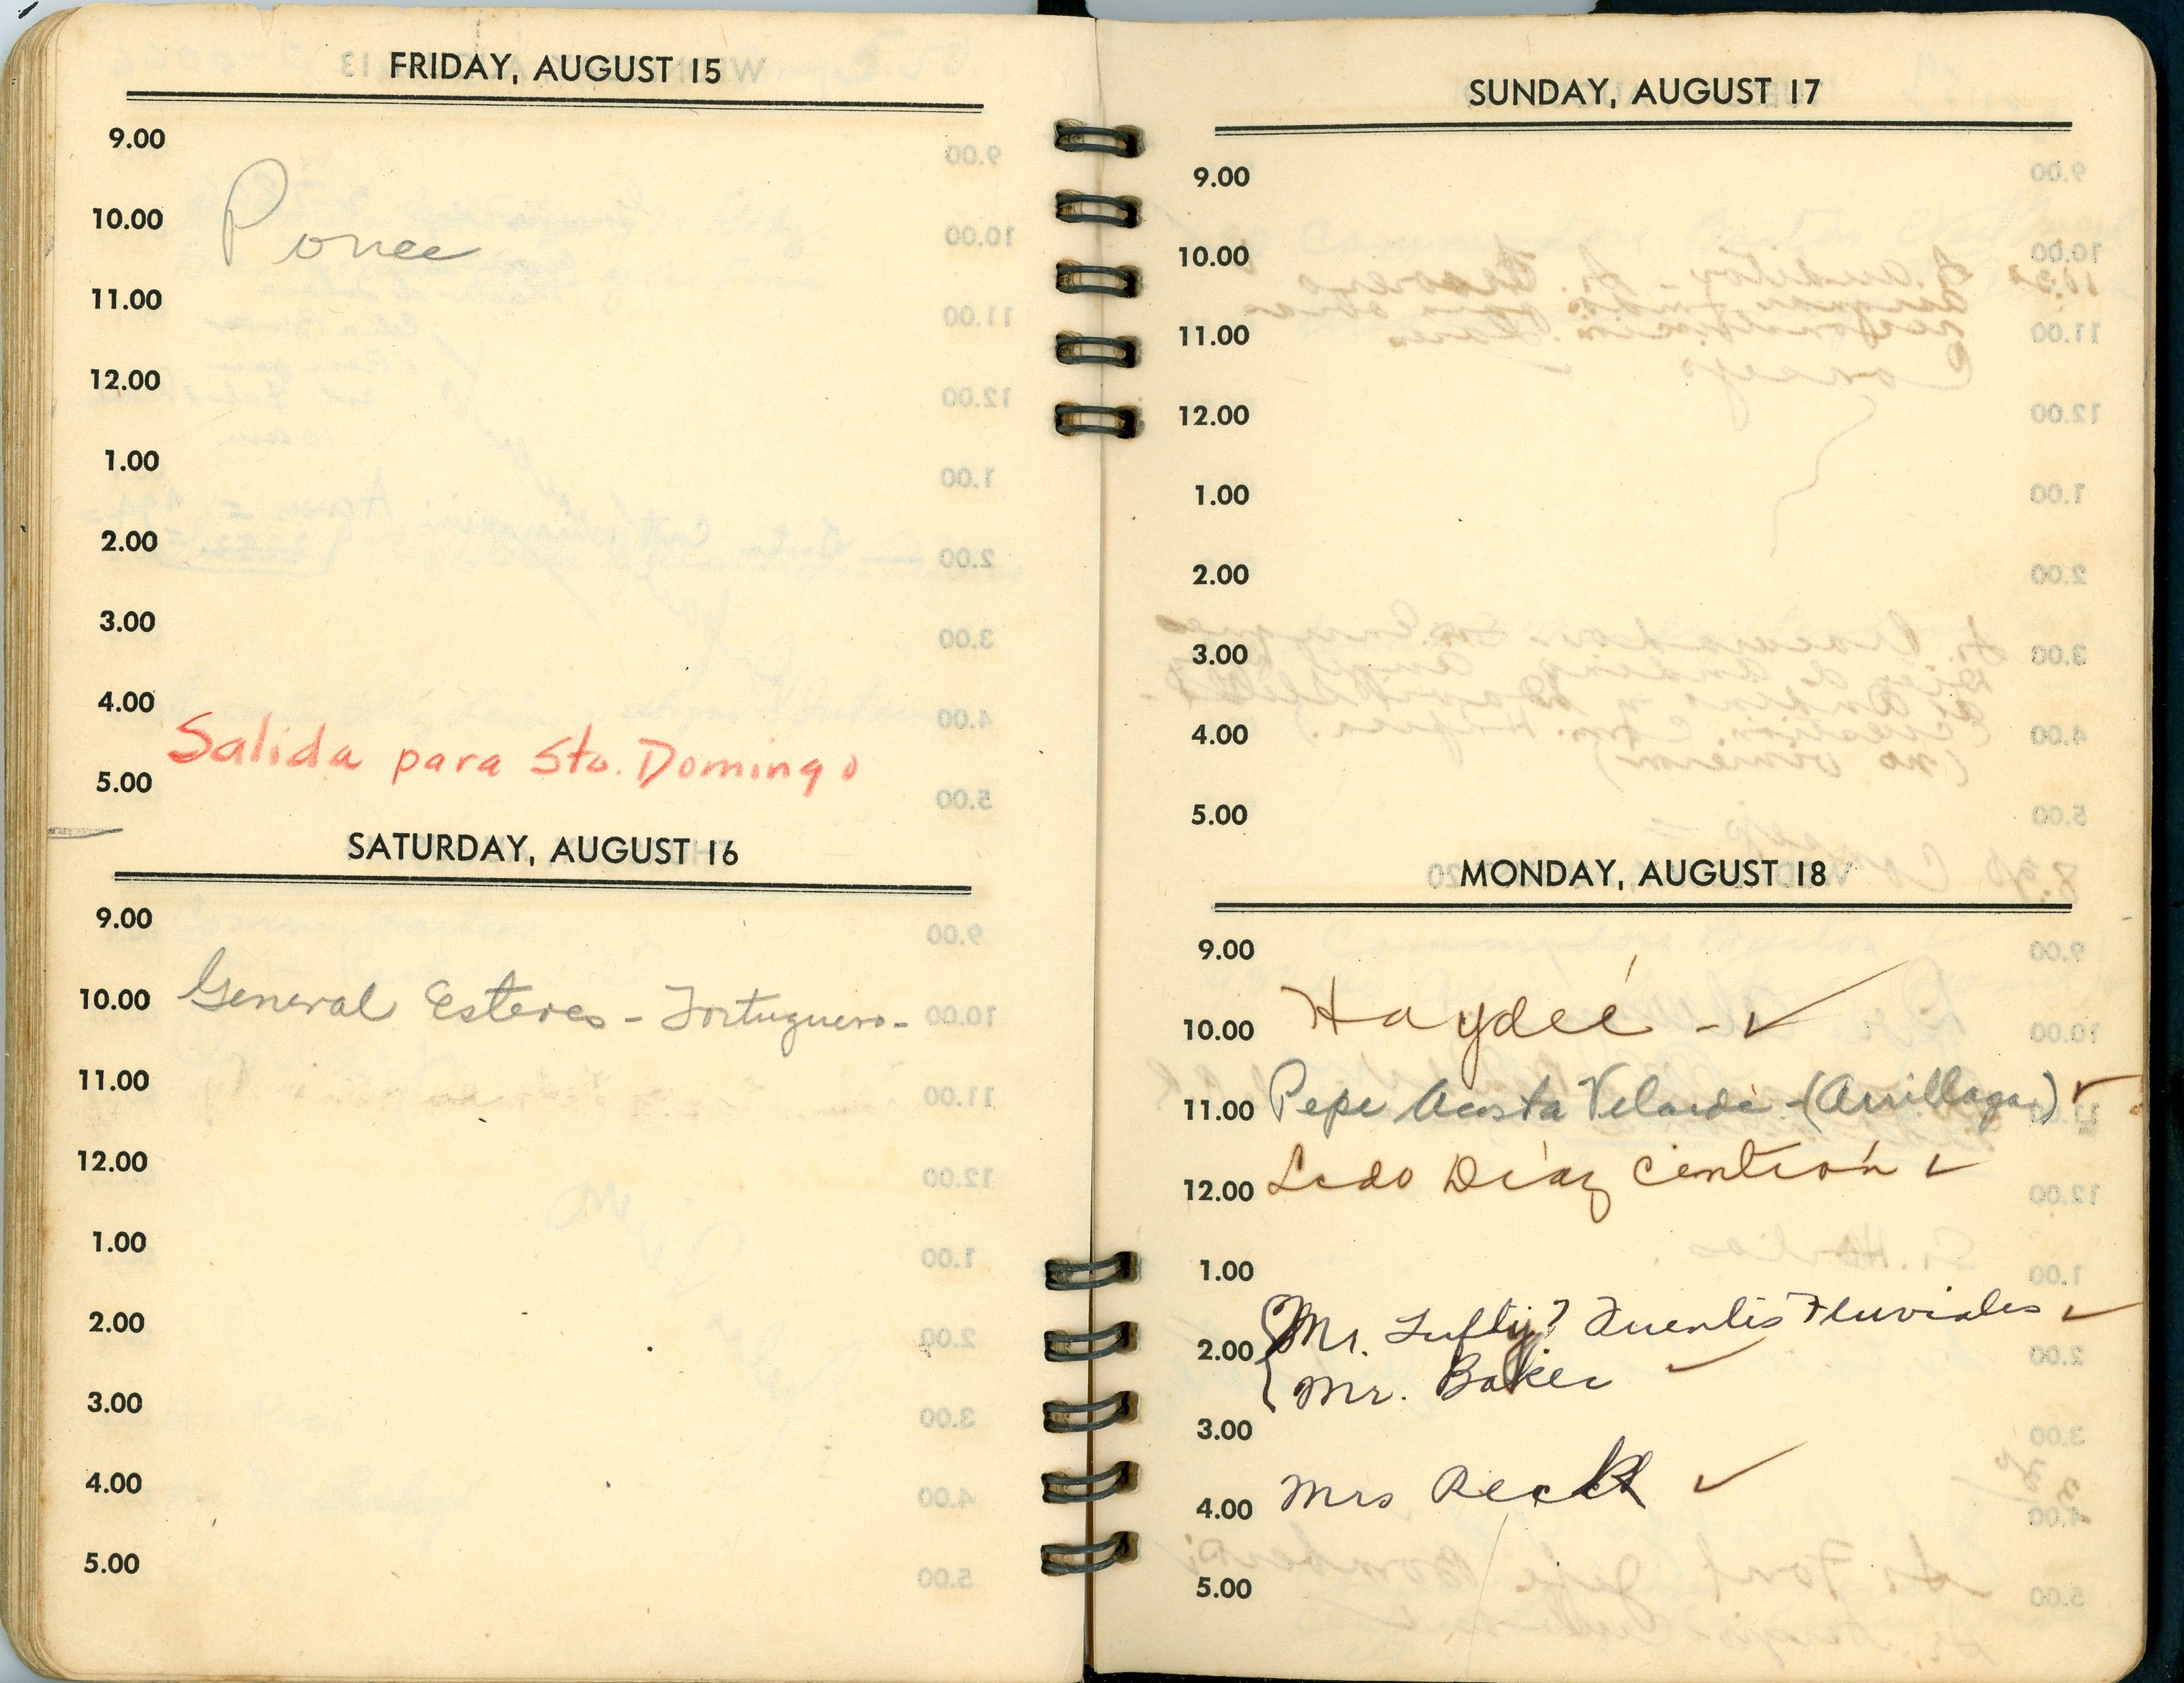 FRIDAY, AUGUST 15
9.00
10.00 Ponce
11.00
12.00
1.00
2.00
3.00
4.00
Salida para Sto. Domingo
5.00
SATURDAY, AUGUST 16
9.00
10.00 General Esteves - Tortuguero -
11.00
12.00
1.00
2.00
3.00
4.00
5.00
SUNDAY, AUGUST 17
9.00
10.00
11.00
12.00
1.00
2.00
3.00
4.00
5.00
MONDAY, AUGUST 18
9.00
10.00 Haydeé - ✓
11.00 Pepe Acosta Velarde - (Arrillaga) ✓
12.00 Lcdo Díaz Cintrón ✓
1.00
Mr. Lufty? Fuentes Fluviales ✓
2.00
Mr. Baker ✓
3.00
4.00 Mrs ✓
5.00